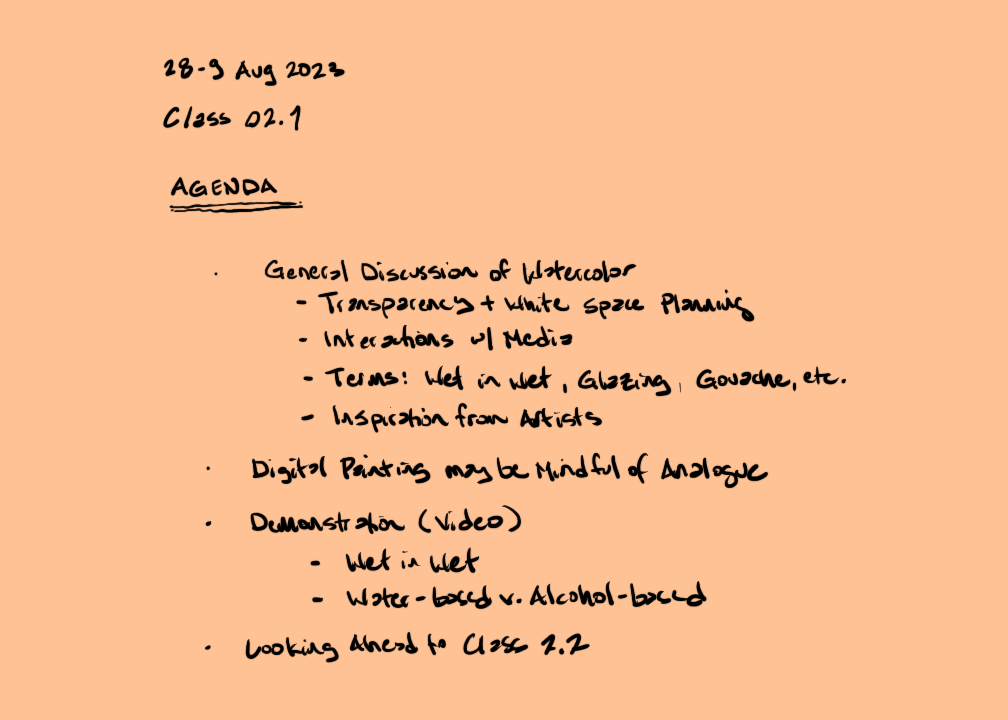 28-9 Aug 2023
Class 02.1
AGENDA
· General Discussion of Watercolor
- Transparency + White Space Planning
- Interactions w/ Media
- Terms: Wet in Wet, Glazing, Gouache, etc.
- Inspiration from Artists
· Digital Painting may be Mindful of Analogue
· Demonstration (Video)
- Wet in Wet
- Water-based v. Alcohol-based
· Looking Ahead to Class 2.2